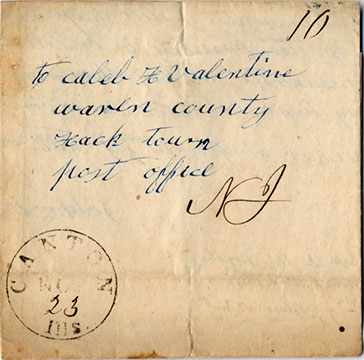 10
to caleb H Valentine
waren county
Hack town
post office
NJ
CANTON
23
Ills.